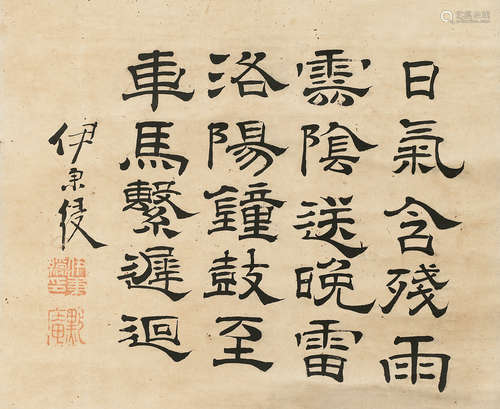 日氣含殘雨
雲陰送晚雷
洛陽鐘鼓至
車馬繫遲迴
伊秉綬